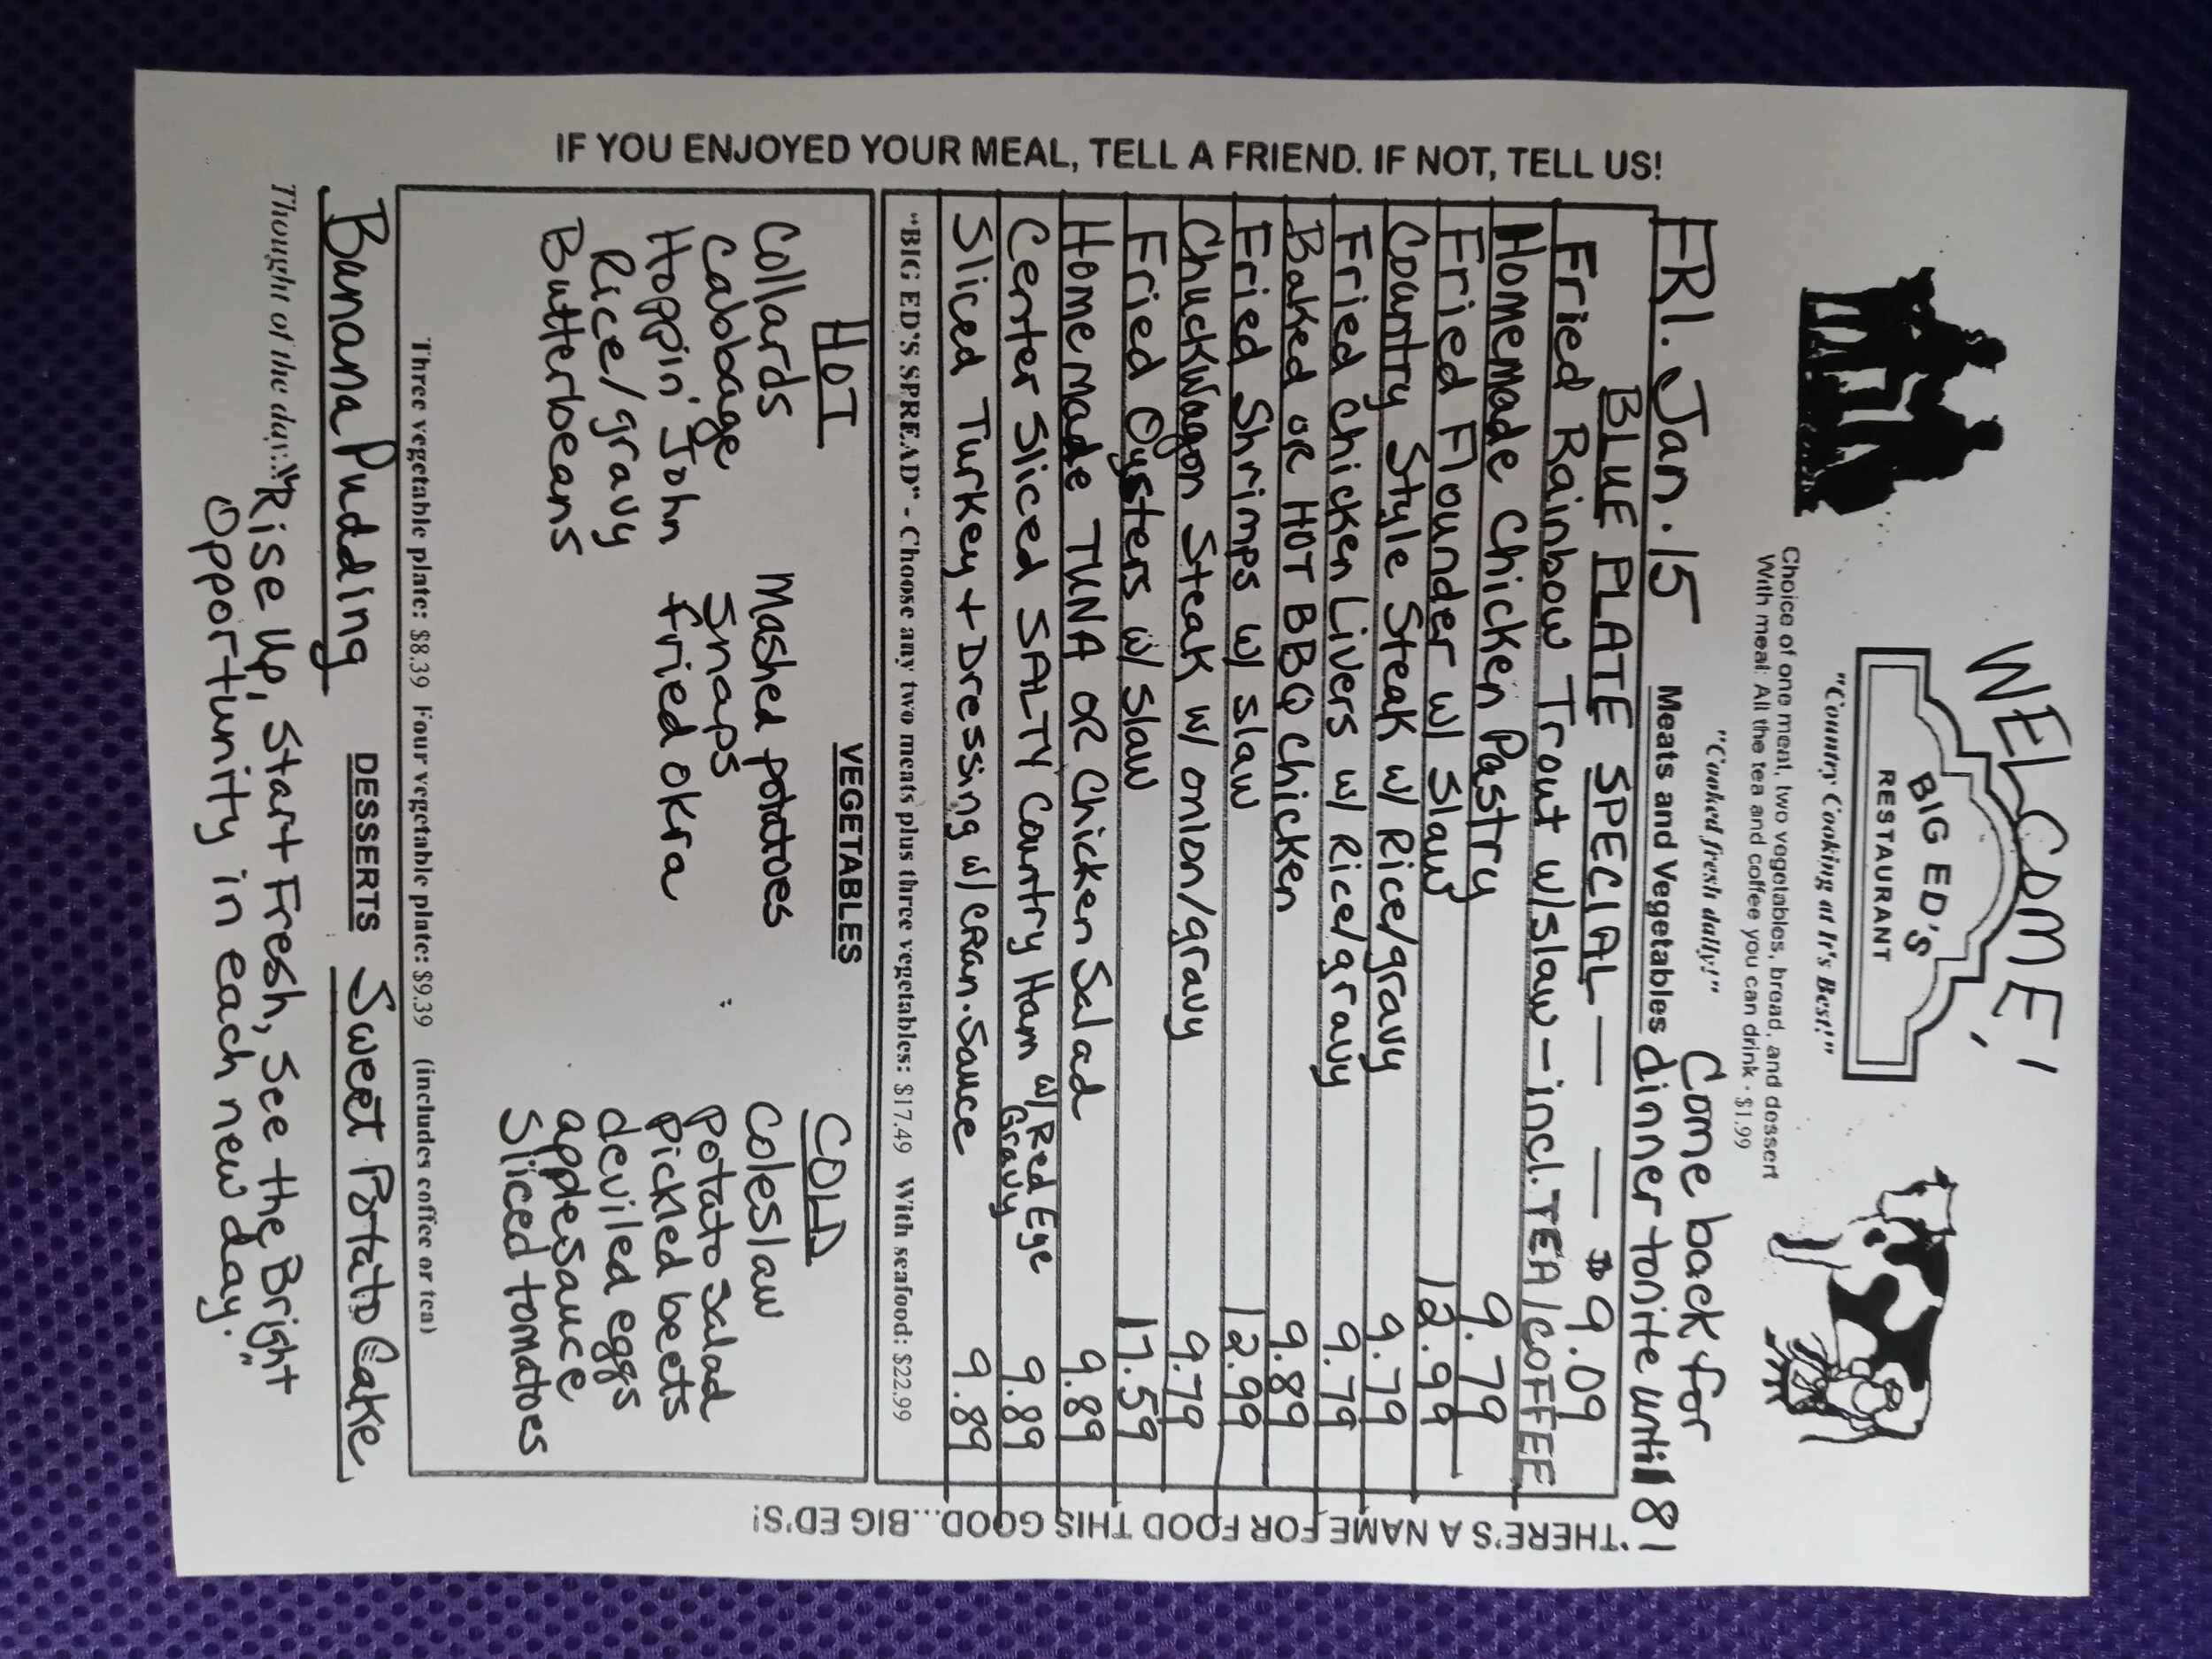 WELCOME!
BIG ED'S
RESTAURANT
"Country Cooking at It's Best!"
Choice of one meat, two vegetables, bread, and dessert
With meal: All the tea and coffee you can drink - $1.99
"Cooked fresh daily!"
Come back for
FRI. Jan. 15 Meats and Vegetables dinner tonite until 8!
BLUE PLATE SPECIAL — — $9.09
Fried Rainbow Trout w/slaw - incl. TEA/COFFEE
Homemade Chicken Pastry 9.79
Fried Flounder w/ Slaw 12.99
Country Style Steak w/ Rice/gravy 9.79
Fried Chicken Livers w/ Rice/gravy 9.79
Baked or HOT BBQ Chicken 9.89
Fried Shrimps w/ slaw 12.99
ChuckWagon Steak w/ onion/gravy 9.79
Fried Oysters w/ slaw 17.59
Homemade TUNA OR Chicken Salad 9.89
Center Sliced SALTY Country Ham w/ Red Eye Gravy 9.89
Sliced Turkey + Dressing w/ CRAN. Sauce 9.89
"BIG ED'S SPREAD" - Choose any two meats plus three vegetables: $17.49 With seafood: $22.99
VEGETABLES
HOT
Collards
Cabbage
Hoppin' John
Rice/gravy
Butterbeans
Mashed potatoes
Snaps
fried okra
COLD
Coleslaw
Potato Salad
Pickled beets
deviled eggs
applesauce
Sliced tomatoes
Three vegetable plate: $8.39 Four vegetable plate: $9.39 (includes coffee or tea)
Banana Pudding DESSERTS Sweet Potato Cake
Thought of the day: "Rise Up, Start Fresh, See the Bright
Opportunity in each new day."
IF YOU ENJOYED YOUR MEAL, TELL A FRIEND. IF NOT, TELL US!
THERE'S A NAME FOR FOOD THIS GOOD...BIG ED'S!